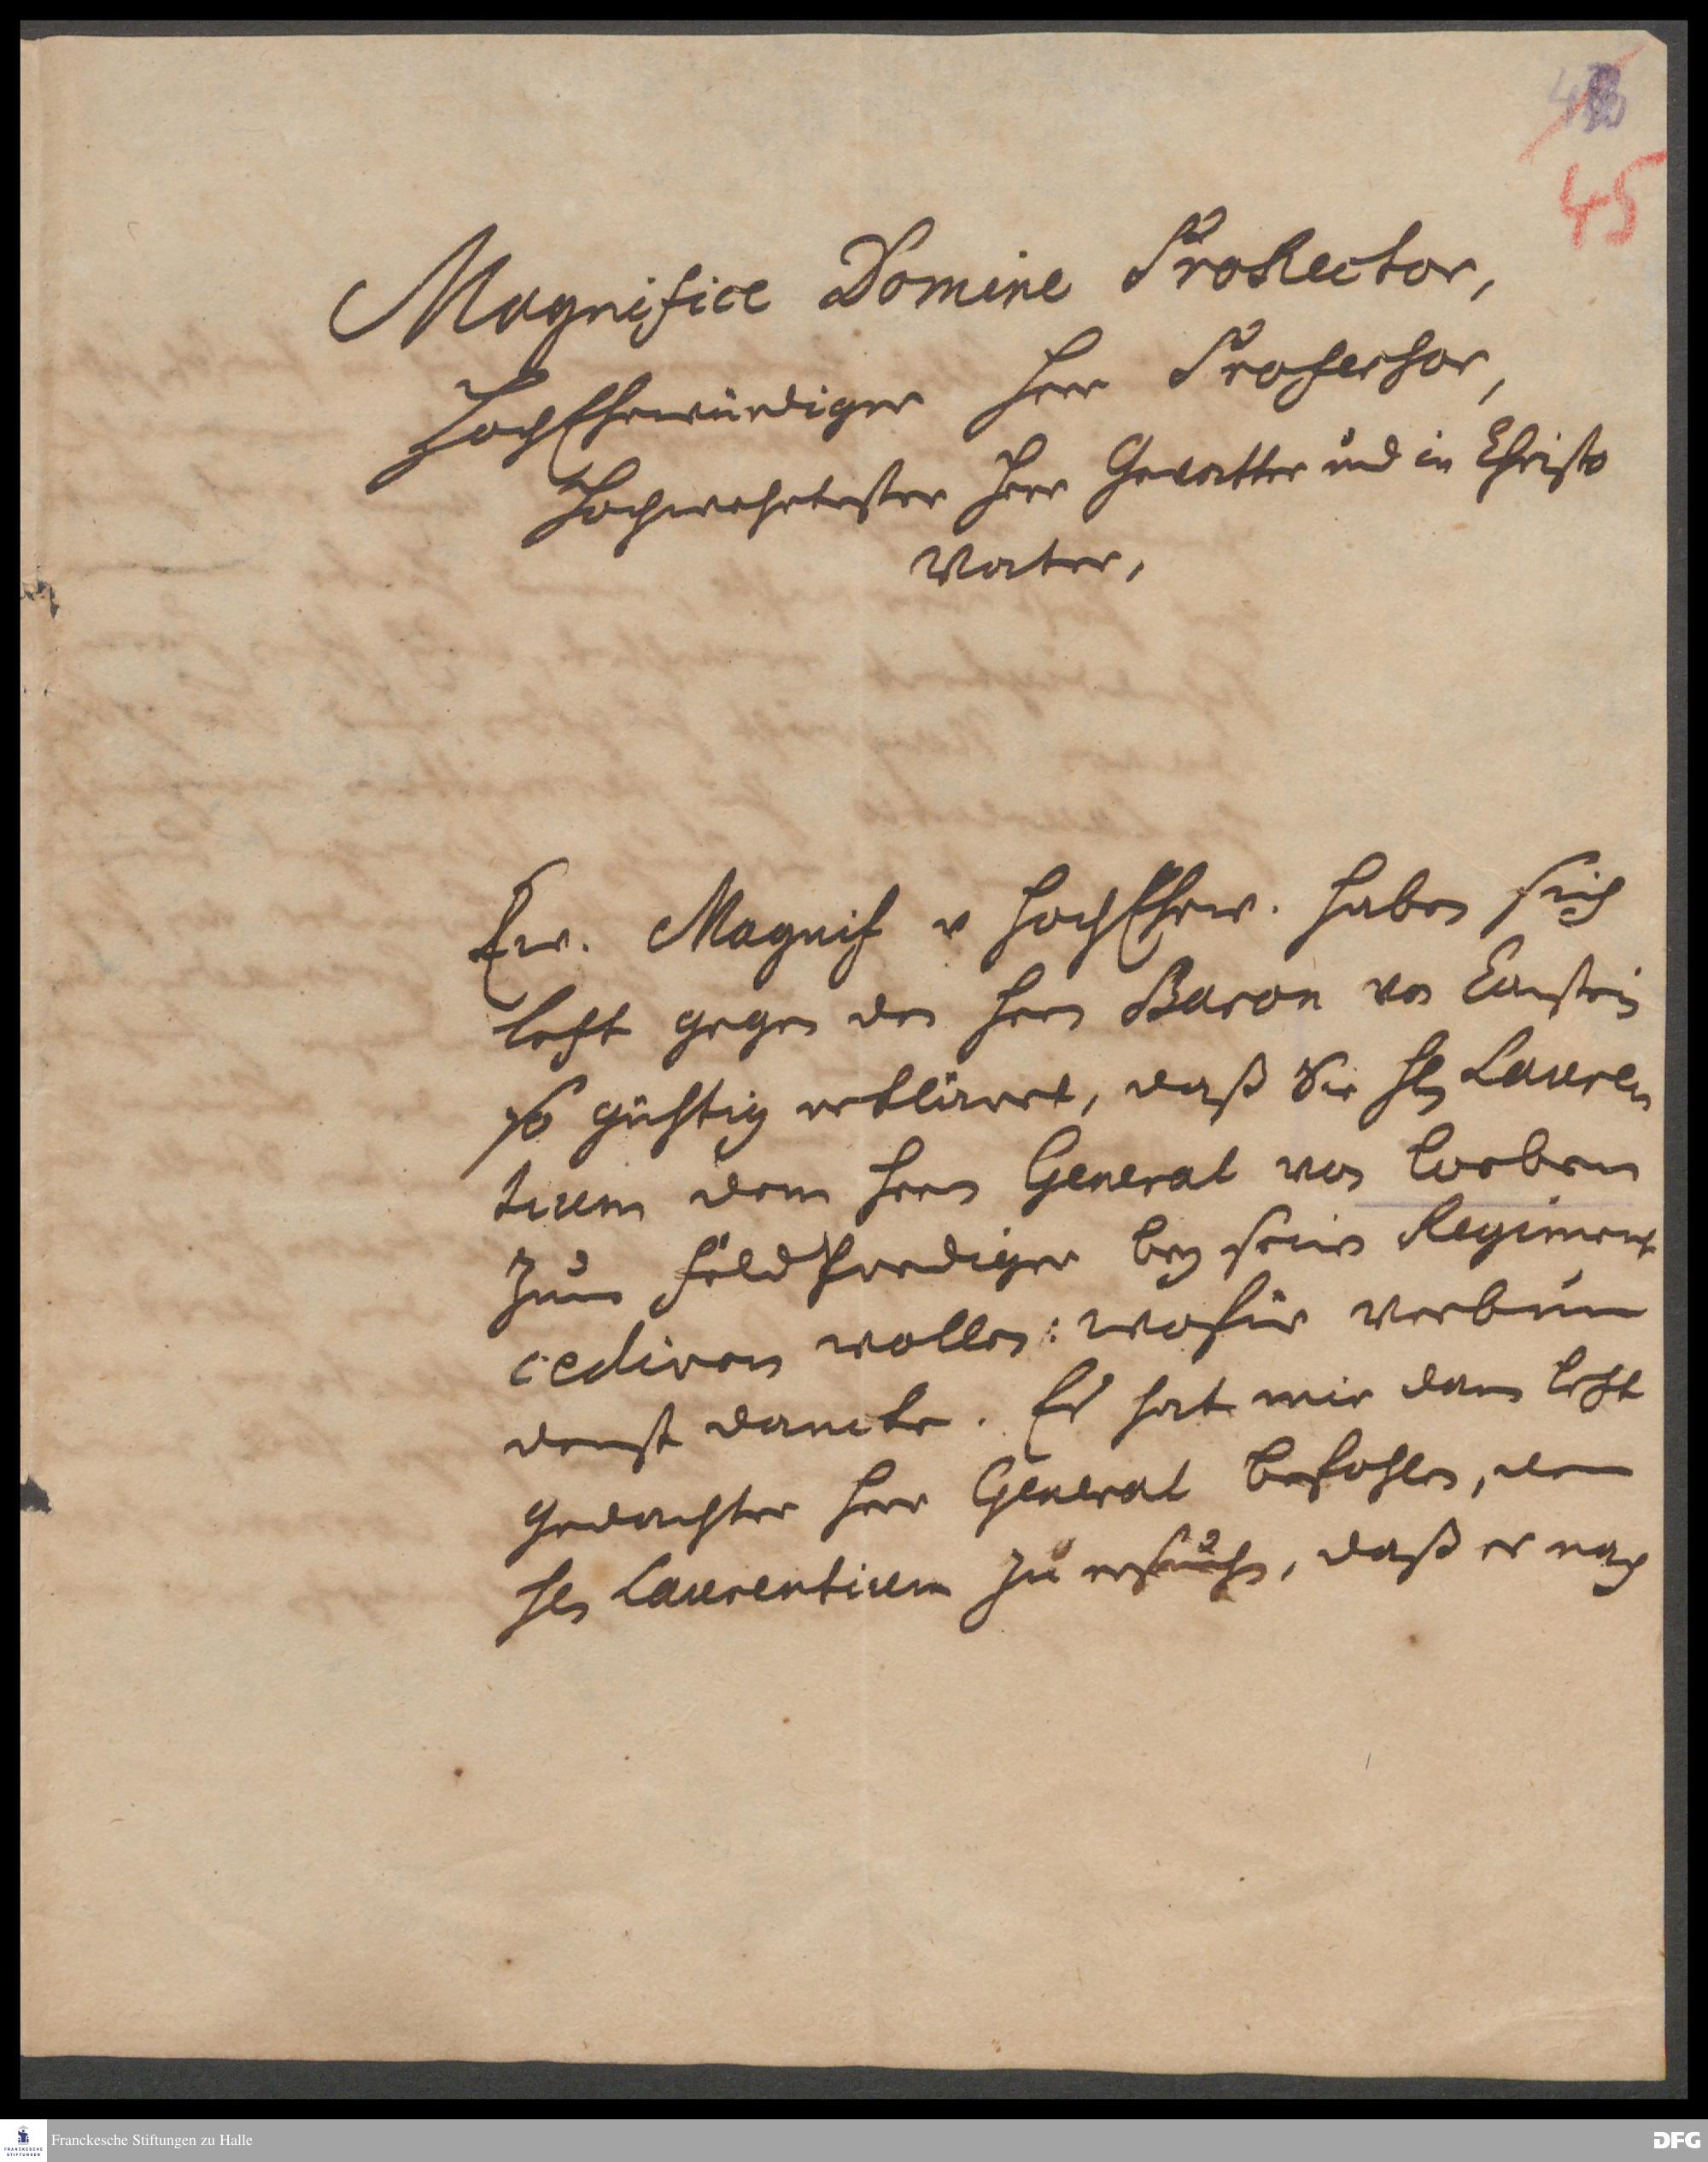 45
Magnifice Domine ProRector,
HochEhrwürdiger Herr Professor,
Hochwehrtester Herr Gevatter und in Christo
Vater,
Ew. Magnif u HochEhrw. haben sich
letzt gegen den Herrn Baron von Canstein
so gühtig erkläret, daß Sie Hn Lauren
tium dem Herrn General von Loeben
zum FeldPrediger bey seinem Regiment
cediren wollen: wofür verbun
denst dancke. Es hat mir dann letzt
gedachter Herr General befohlen, den
Hn Laurentium zu ersuchen, daß er nach
Franckesche Stiftungen zu Halle
FRANCKESCHE
STIFTUNGEN
DFG